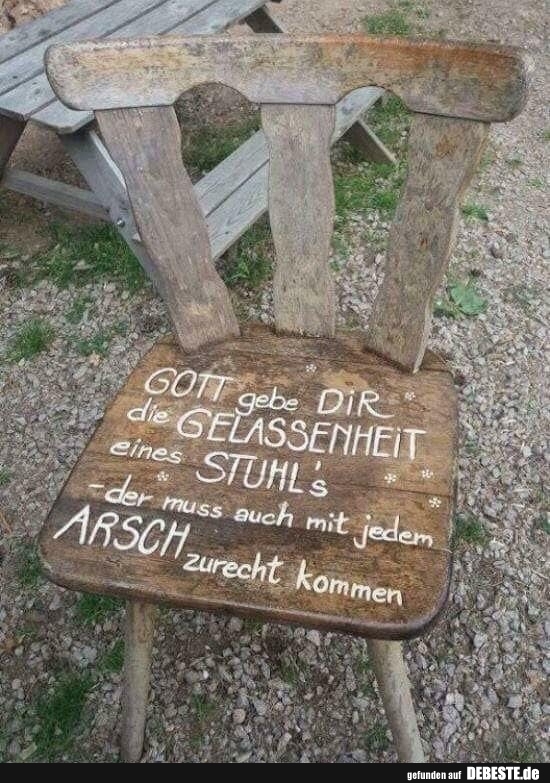 GOTT gebe DiR
die GELASSENHEiT
eines STUHL's
-der muss auch mit jedem
ARSCH zurecht kommen
gefunden auf DEBESTE.de